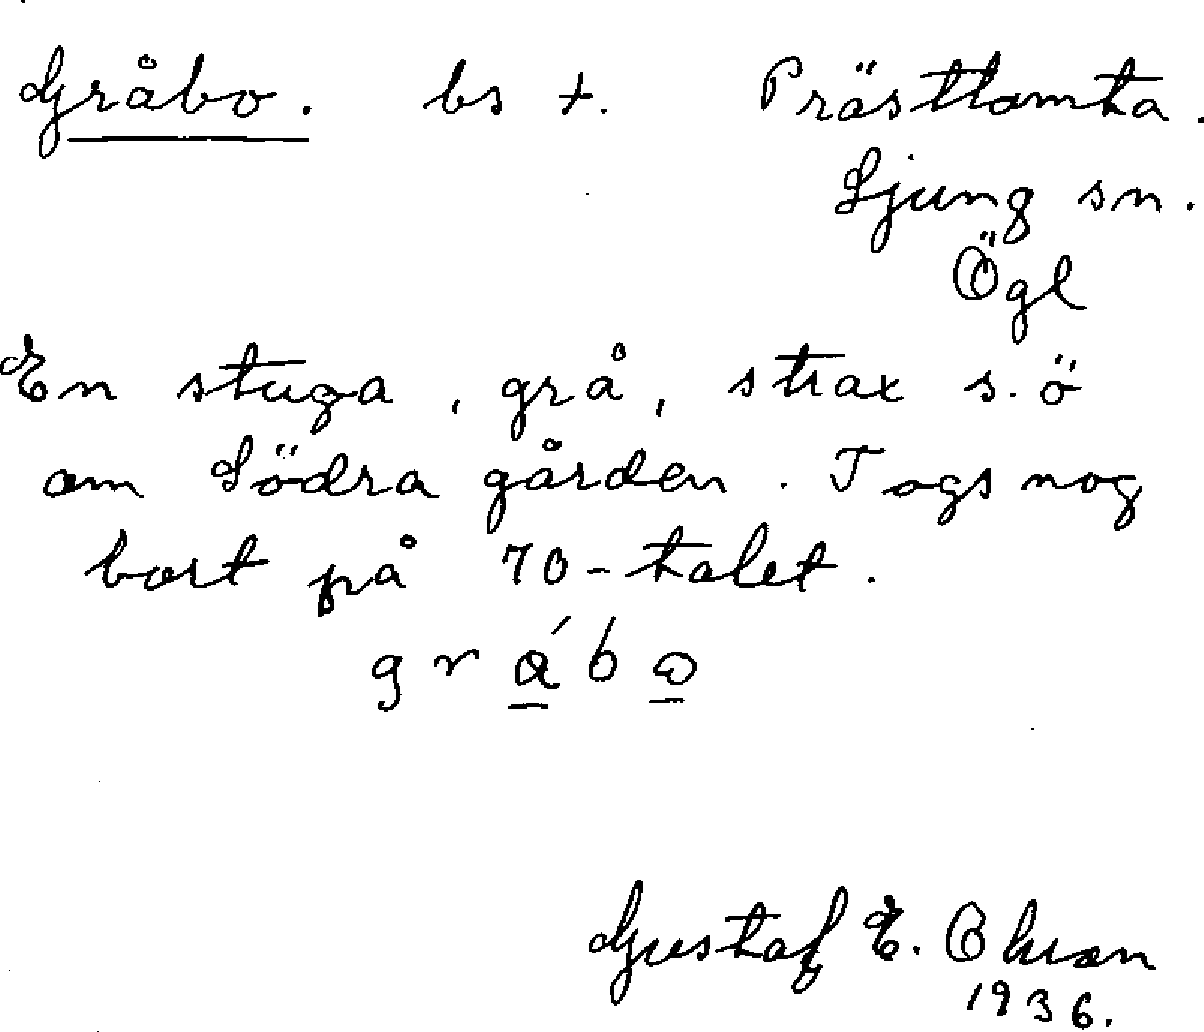 Gråbo. bs +. Prästtomta.
Ljung sn.
Ögl
En stuga, grå, strax s.ö
om Södra gården. Togs nog
bort på 70-talet.
gråbo
Gustaf E.
1936.